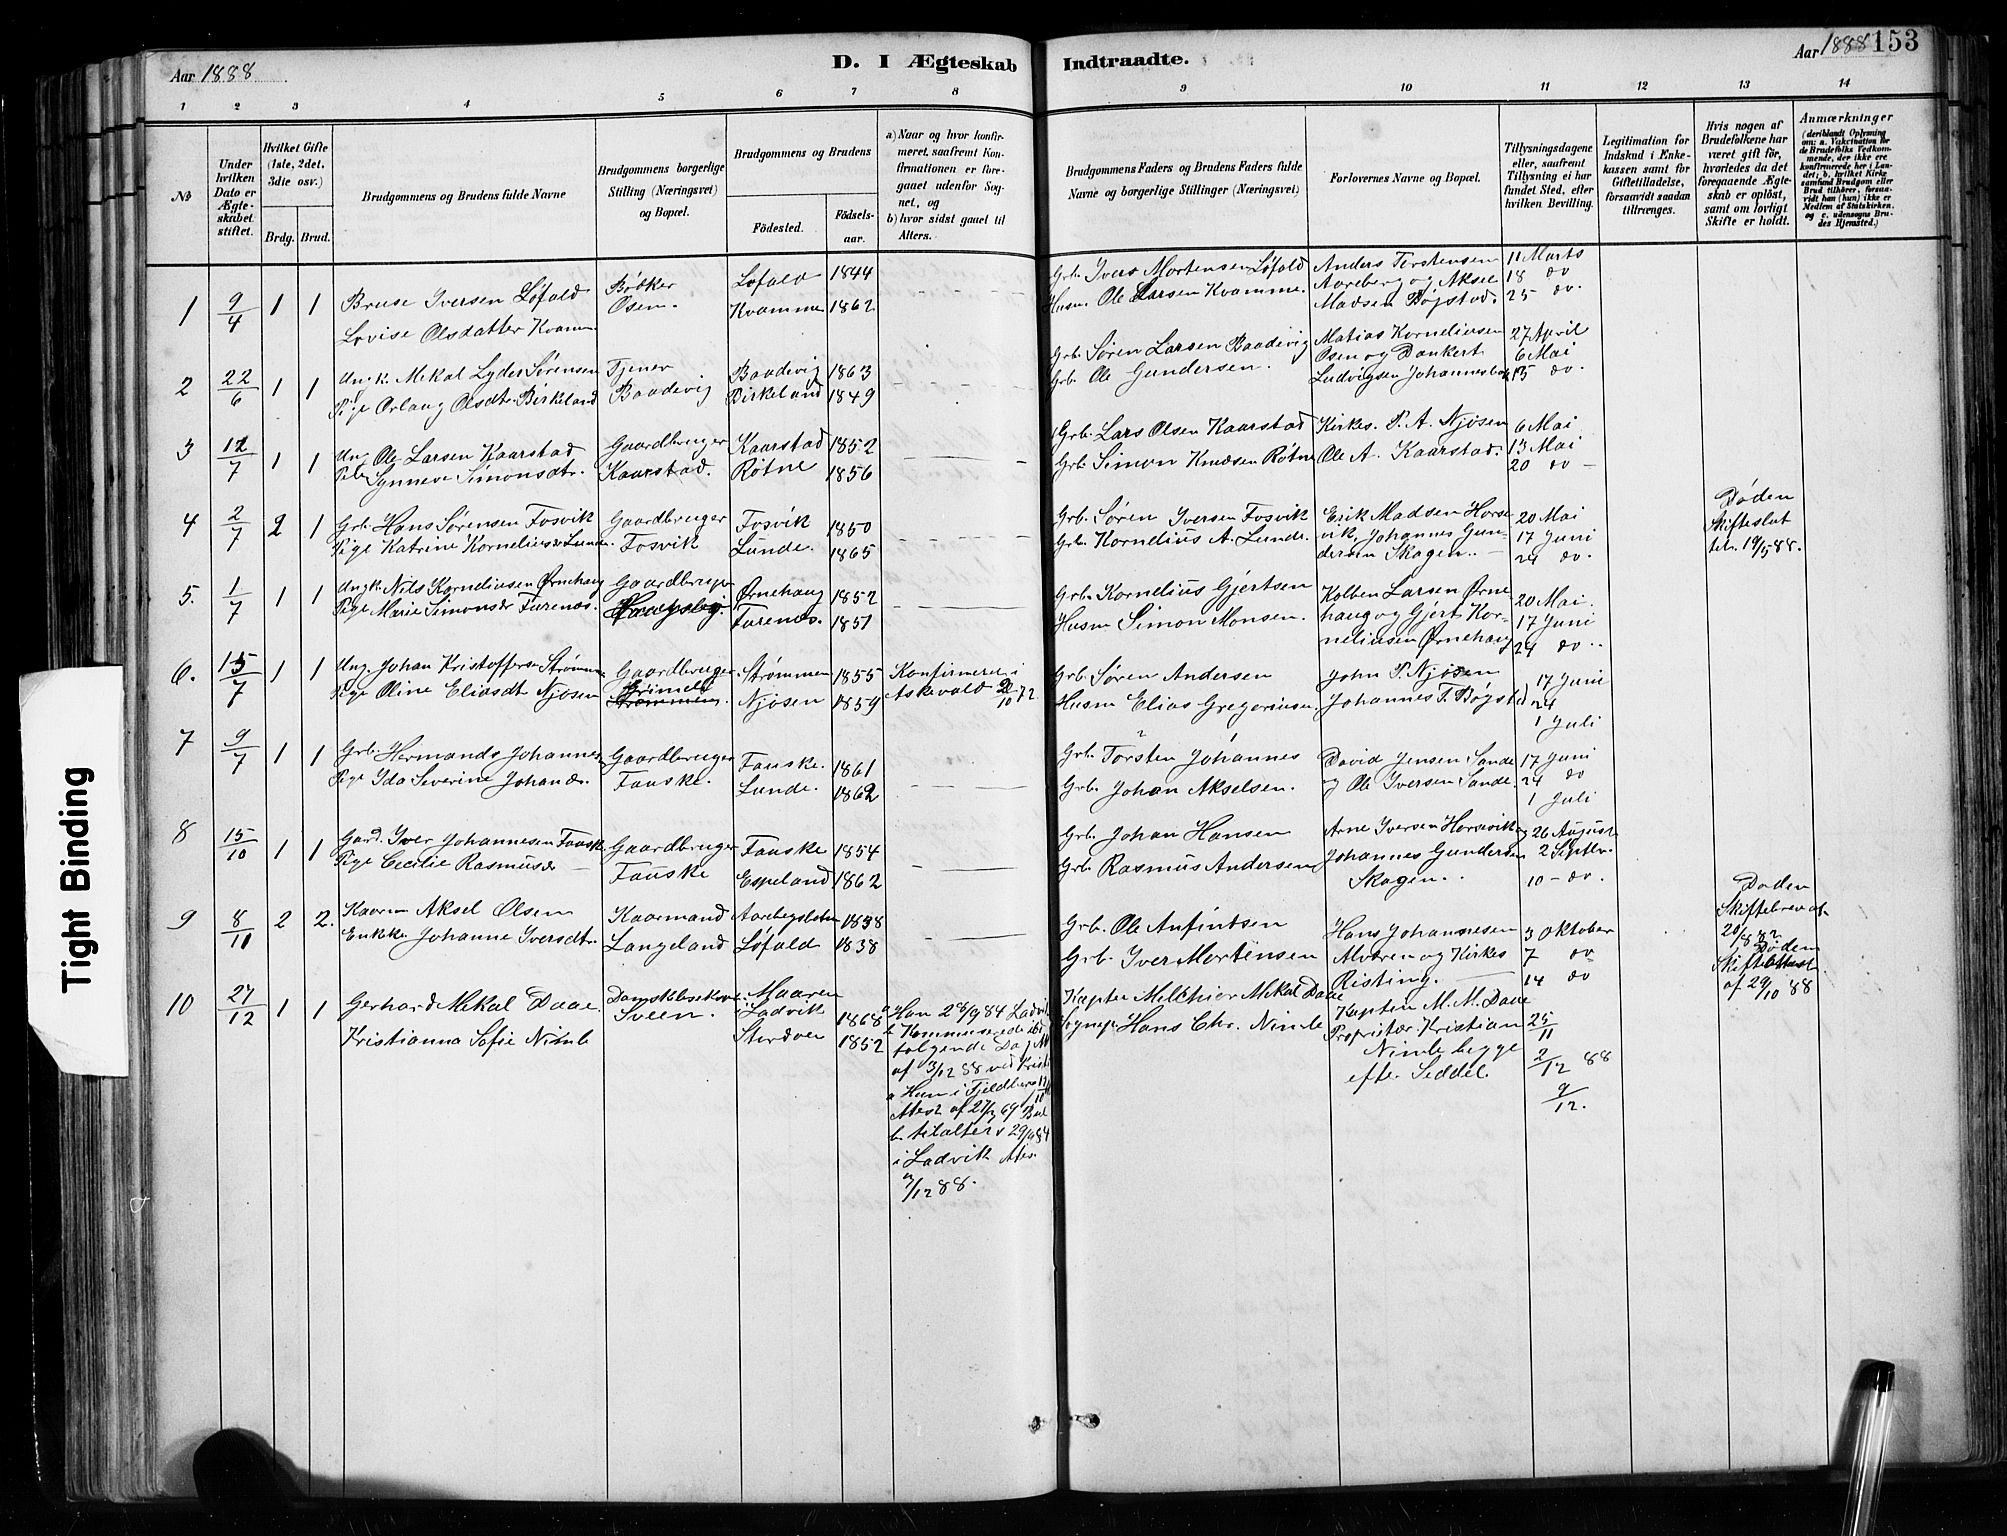 Aar 1888
D. I Ægteskab Indtraadte.
Aar 1888 153
1 2 3 4 5 6 7 8 9 10 11 12 13 14
№
Under hvilken Dato er Ægteskabet stiftet.
Hvilket Gifte (1ste, 2det, 3die osv.)
Brdg. Brud.
Brudgommens og Brudens fulde Navne
Brudgommens borgerlige Stilling (Næringsvei) og Bopæl.
Brudgommens og Brudens
Födested. Födselsaar.
a) Naar og hvor konfirmeret, saafremt Konfirmationen er foregaaet udenfor Sognet, og
b) hvor sidst gaaet til Alters.
Brudgommens Faders og Brudens Faders fulde Navne og borgerlige Stillinger (Næringsvei)
Forlovernes Navne og Bopæl.
Tillysningsdagene eller, saafremt Tillysning ei har fundet Sted, efter hvilken Bevilling.
Legitimation for Indskud i Enkekassen samt for Giftetilladelse, forsaavidt saadan tiltrænges.
Hvis nogen af Brudefolkene har været gift för, hvorledes da det foregaaende Ægteskab er oplöst, samt om lovligt Skifte er holdt.
Anmærkninger
(deriblandt Oplysning om: a. Vakcination for de Brudefolks Vedkommende, der ikke ere konfirmerede her i Landet; b. hvilket Kirkesamfund Brudgom eller Brud tilhører, forsaavidt han (hun) ikke er Medlem af Statskirken, og c. udensogns Brudes Hjemsted.)
1 9/4 1 1 Bruse Iversen Løfald Bødker Løfald 1844 Grb. Ivers Mortensen Løfald Anders Terstensen 11 Marts
Lovise Olsdatter Kvamm Osen. Kvamme 1862 Husm. Ole Larsen Kvamme. Aareberg og Aksel 18 do
Madsen Bøgstad. 25 do.
2 22/6 1 1 Ungk. Mekal Lyder Sørensen Tjener Baadevig 1863 Grb. Søren Larsen Baadevig Matias Korneliussen 27 April
Pige Orlaug Olsdt. Birkeland Baadevig Birkeland 1849 Grb. Ole Gundersen. Osen og Dankert 6 Mai
Ludvigsen Johannesbo 13 do.
3 12/7 1 1 Ung Ole Larsen Kaarstad Gaardbruger Kaarstad 1852 Grb. Lars Olsen Kaarstad Kirkes. P. A. Njøsen 6 Mai
Synneve Simonsdt. Kaarstad. Røtne 1856 Grb. Simon Knudsen Røtne Ole A. Kaarstad. 13 Mai
20 do
4 2/7 2 1 Grb. Hans Sørensen Fosvik Gaardbruger Fosvik 1850 Grb. Søren Iversen Fosvik Erik Madsen Horse 20 Mai Døden
Pige Katrine Kornelius Lunde. Fosvik Lunde. 1865 Grb. Kornelius A. Lunde. vik, Johannes Gun 17 Juni Skifteslut
dersen Skagen. 24 do. 19/5 88.
5. 1/7 1 1 Ungk. Nils Korneliusen Ørnehaug Gaardbruger Ørnehaug 1852 Grb. Kornelius Gjertsen Kolben Larsen Ørne 20 Mai.
Pige Marie Simonsd Furenes. Furenes. 1851 Husm Simon Monsen. haug og Gjert Kor- 17 Juni
neliusen Ørnehaug 24 do
6. 15/7 1 1 Ung. Johan Kristoffersen Strømm Gaardbruger Strømmen 1855 Konfirmeret i Grb. Søren Andersen John P. Njøsen 17 Juni
Pige Oline Eliasdt Njøsen Grimelid Strømmen. Njøsen 1859 Askevold 2/10 72 Husm Elias Gregoriusen Johannes T. Bøgst. 24
1 Juli
7 9/7 1 1 Grb. Hermands Johannes Gaardbruger Fauske. 1861 Grb. Torsten Johannes David Jensen Sande 17 Juni
Pige Ida Severine Johands. Fauske. Lunde. 1862 Grb. Johan Akselsen. og Ole Iversen Sande. 24 do
1 Juli
8 15/10 1 1 Gard. Iver Johannesen Fauske. Gaardbruger Fauske 1854 Grb. Johan Hansen Arne Iversen Horsevik 26 August
Pige Cecilie Rasmusd Fauske Espeland 1862 Grb. Rasmus Andersen Johannes Gundersen 2 Septbr.
Skagen. 10 do.
9 8/11 2 2. Kaarm Aksel Olsen Kaarmand Aarebergsbotn 1838 Grb. Ole Anfindsen Hans Johannesen 3 Oktober Døden
Enkke Johanne Iversdt. Langeland Løfald 1838 Grb. Iver Mortensen Alværen og Kirkes 7 do Skiftebrev af
Risting. 14 do 20/8 82
Døden
Skifteattest
af 29/10 88
10 27/12 1 1 Gerhard Mekal Daae Damskibsekspe. Maaren 1868 a Han 28/9 84 Ladvik Kaptein Melchior Mekal Daae Kapten M. M. Daae
Kristianna Sofie Nimb Sveen. i Ladvik Sognep. Hans Chr. Nimb Proprietær Kristian 25/11
Stordøen 1852 Nimb begge 2/12 88
følgende Dag efter Seddel. 9/12.
af 3/12 88 ved Kristi
a Hun i Fjeldberg
Attest af
b. til alters 29/9 84
i Ladvik Attes.
/12 88.
Tight Binding